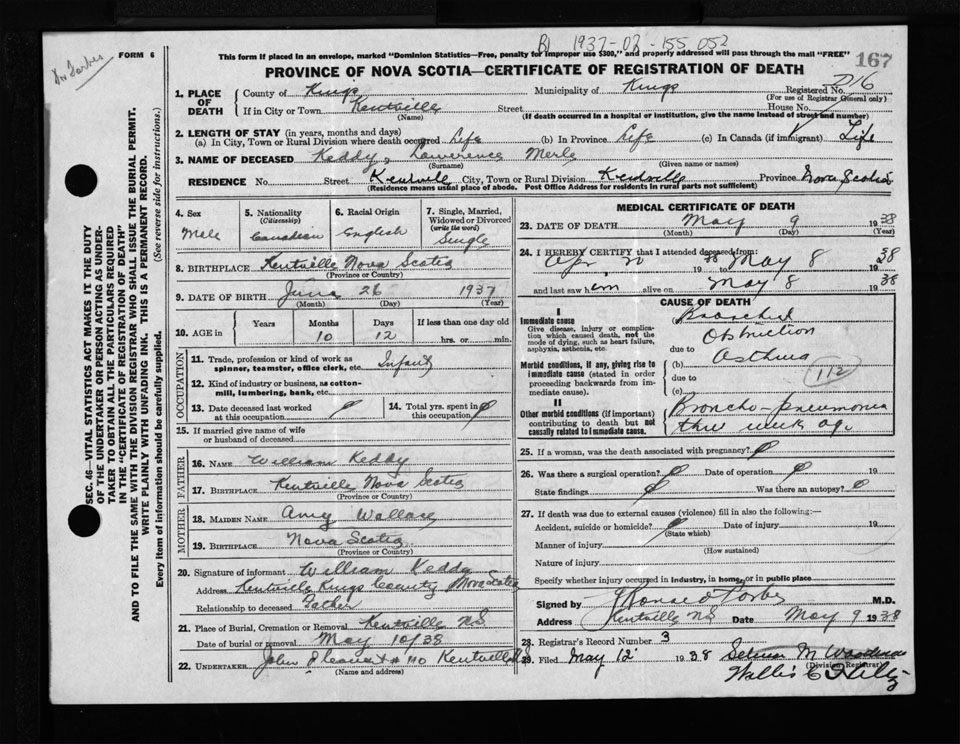 B 1937-02-155052
Dr Forbes
FORM 6
This form if placed in an envelope, marked "Dominion Statistics—Free, penalty for improper use $300," and properly addressed will pass through the mail "FREE"
167
PROVINCE OF NOVA SCOTIA—CERTIFICATE OF REGISTRATION OF DEATH
1. PLACE OF DEATH
County of Kings Municipality of Kings Registered No. 216
(For use of Registrar General only)
If in City or Town Kentville Street House No.
(Name) (If death occurred in a hospital or institution, give the name instead of street and number)
2. LENGTH OF STAY (in years, months and days)
(a) In City, Town or Rural Division where death occurred Life (b) In Province Life (c) In Canada (if immigrant) Life
3. NAME OF DECEASED Keddy, Lawerence Merle
(Surname) (Given name or names)
RESIDENCE No. Street Kentville City, Town or Rural Division Kentville Province Nova Scotia
(Residence means usual place of abode. Post Office Address for residents in rural parts not sufficient)
SEC. 46—VITAL STATISTICS ACT MAKES IT THE DUTY
OF THE UNDERTAKER OR PERSON ACTING AS UNDER-
TAKER TO OBTAIN ALL THE PARTICULARS REQUIRED
IN THE "CERTIFICATE OF REGISTRATION OF DEATH"
AND TO FILE THE SAME WITH THE DIVISION REGISTRAR WHO SHALL ISSUE THE BURIAL PERMIT.
WRITE PLAINLY WITH UNFADING INK. THIS IS A PERMANENT RECORD.
Every item of information should be carefully supplied. (See reverse side for instructions.)
4. Sex
Male
5. Nationality
(Citizenship)
Canadian
6. Racial Origin
English
7. Single, Married,
Widowed or Divorced
(write the word)
Single
8. BIRTHPLACE Kentville Nova Scotia
(Province or Country)
9. DATE OF BIRTH June 26 1937
(Month) (Day) (Year)
10. AGE in
Years Months Days If less than one day old
10 12 hrs. or min.
OCCUPATION
11. Trade, profession or kind of work as
spinner, teamster, office clerk, etc. Infant
12. Kind of industry or business, as cotton-
mill, lumbering, bank, etc.
13. Date deceased last worked
at this occupation
14. Total yrs. spent in
this occupation
15. If married give name of wife
or husband of deceased
FATHER
16. NAME William Keddy
17. BIRTHPLACE Kentville Nova Scotia
(Province or Country)
MOTHER
18. MAIDEN NAME Amy Wallace
19. BIRTHPLACE Nova Scotia
(Province or Country)
20. Signature of informant William Keddy
Address Kentville Kings County Nova Scotia
Relationship to deceased Father
21. Place of Burial, Cremation or Removal Kentville NS
Date of burial or removal May 10/38
22. UNDERTAKER John Kentville N.S
(Name and address)
MEDICAL CERTIFICATE OF DEATH
23. DATE OF DEATH May 9 1938
(Month) (Day) (Year)
24. I HEREBY CERTIFY that I attended deceased from:
Apr, 19 to May 8 1938
and last saw him alive on May 8 1938
CAUSE OF DEATH
I
Immediate cause
Give disease, injury or complica-
tion which caused death, not the
mode of dying, such as heart failure,
asphyxia, asthenia, etc.
Bronchial
Obstruction
due to
Asthma
Morbid conditions, if any, giving rise to
immediate cause (stated in order
proceeding backwards from im-
mediate cause).
(b)
due to
(c)
112
II
Other morbid conditions (if important)
contributing to death but not
causally related to immediate cause.
Broncho-pneumonia
three weeks ago
25. If a woman, was the death associated with pregnancy?
26. Was there a surgical operation? Date of operation 19
State findings Was there an autopsy?
27. If death was due to external causes (violence) fill in also the following:—
Accident, suicide or homicide? Date of injury 19
(State which)
Manner of injury
(How sustained)
Nature of injury
Specify whether injury occurred in industry, in home, or in public place
Signed by J Ronald Forbes M.D.
Address Kentville NS Date May 9 1938
28. Registrar's Record Number 3
29. Filed May 12 1938 Selmar M Woodman
(Division Registrar)